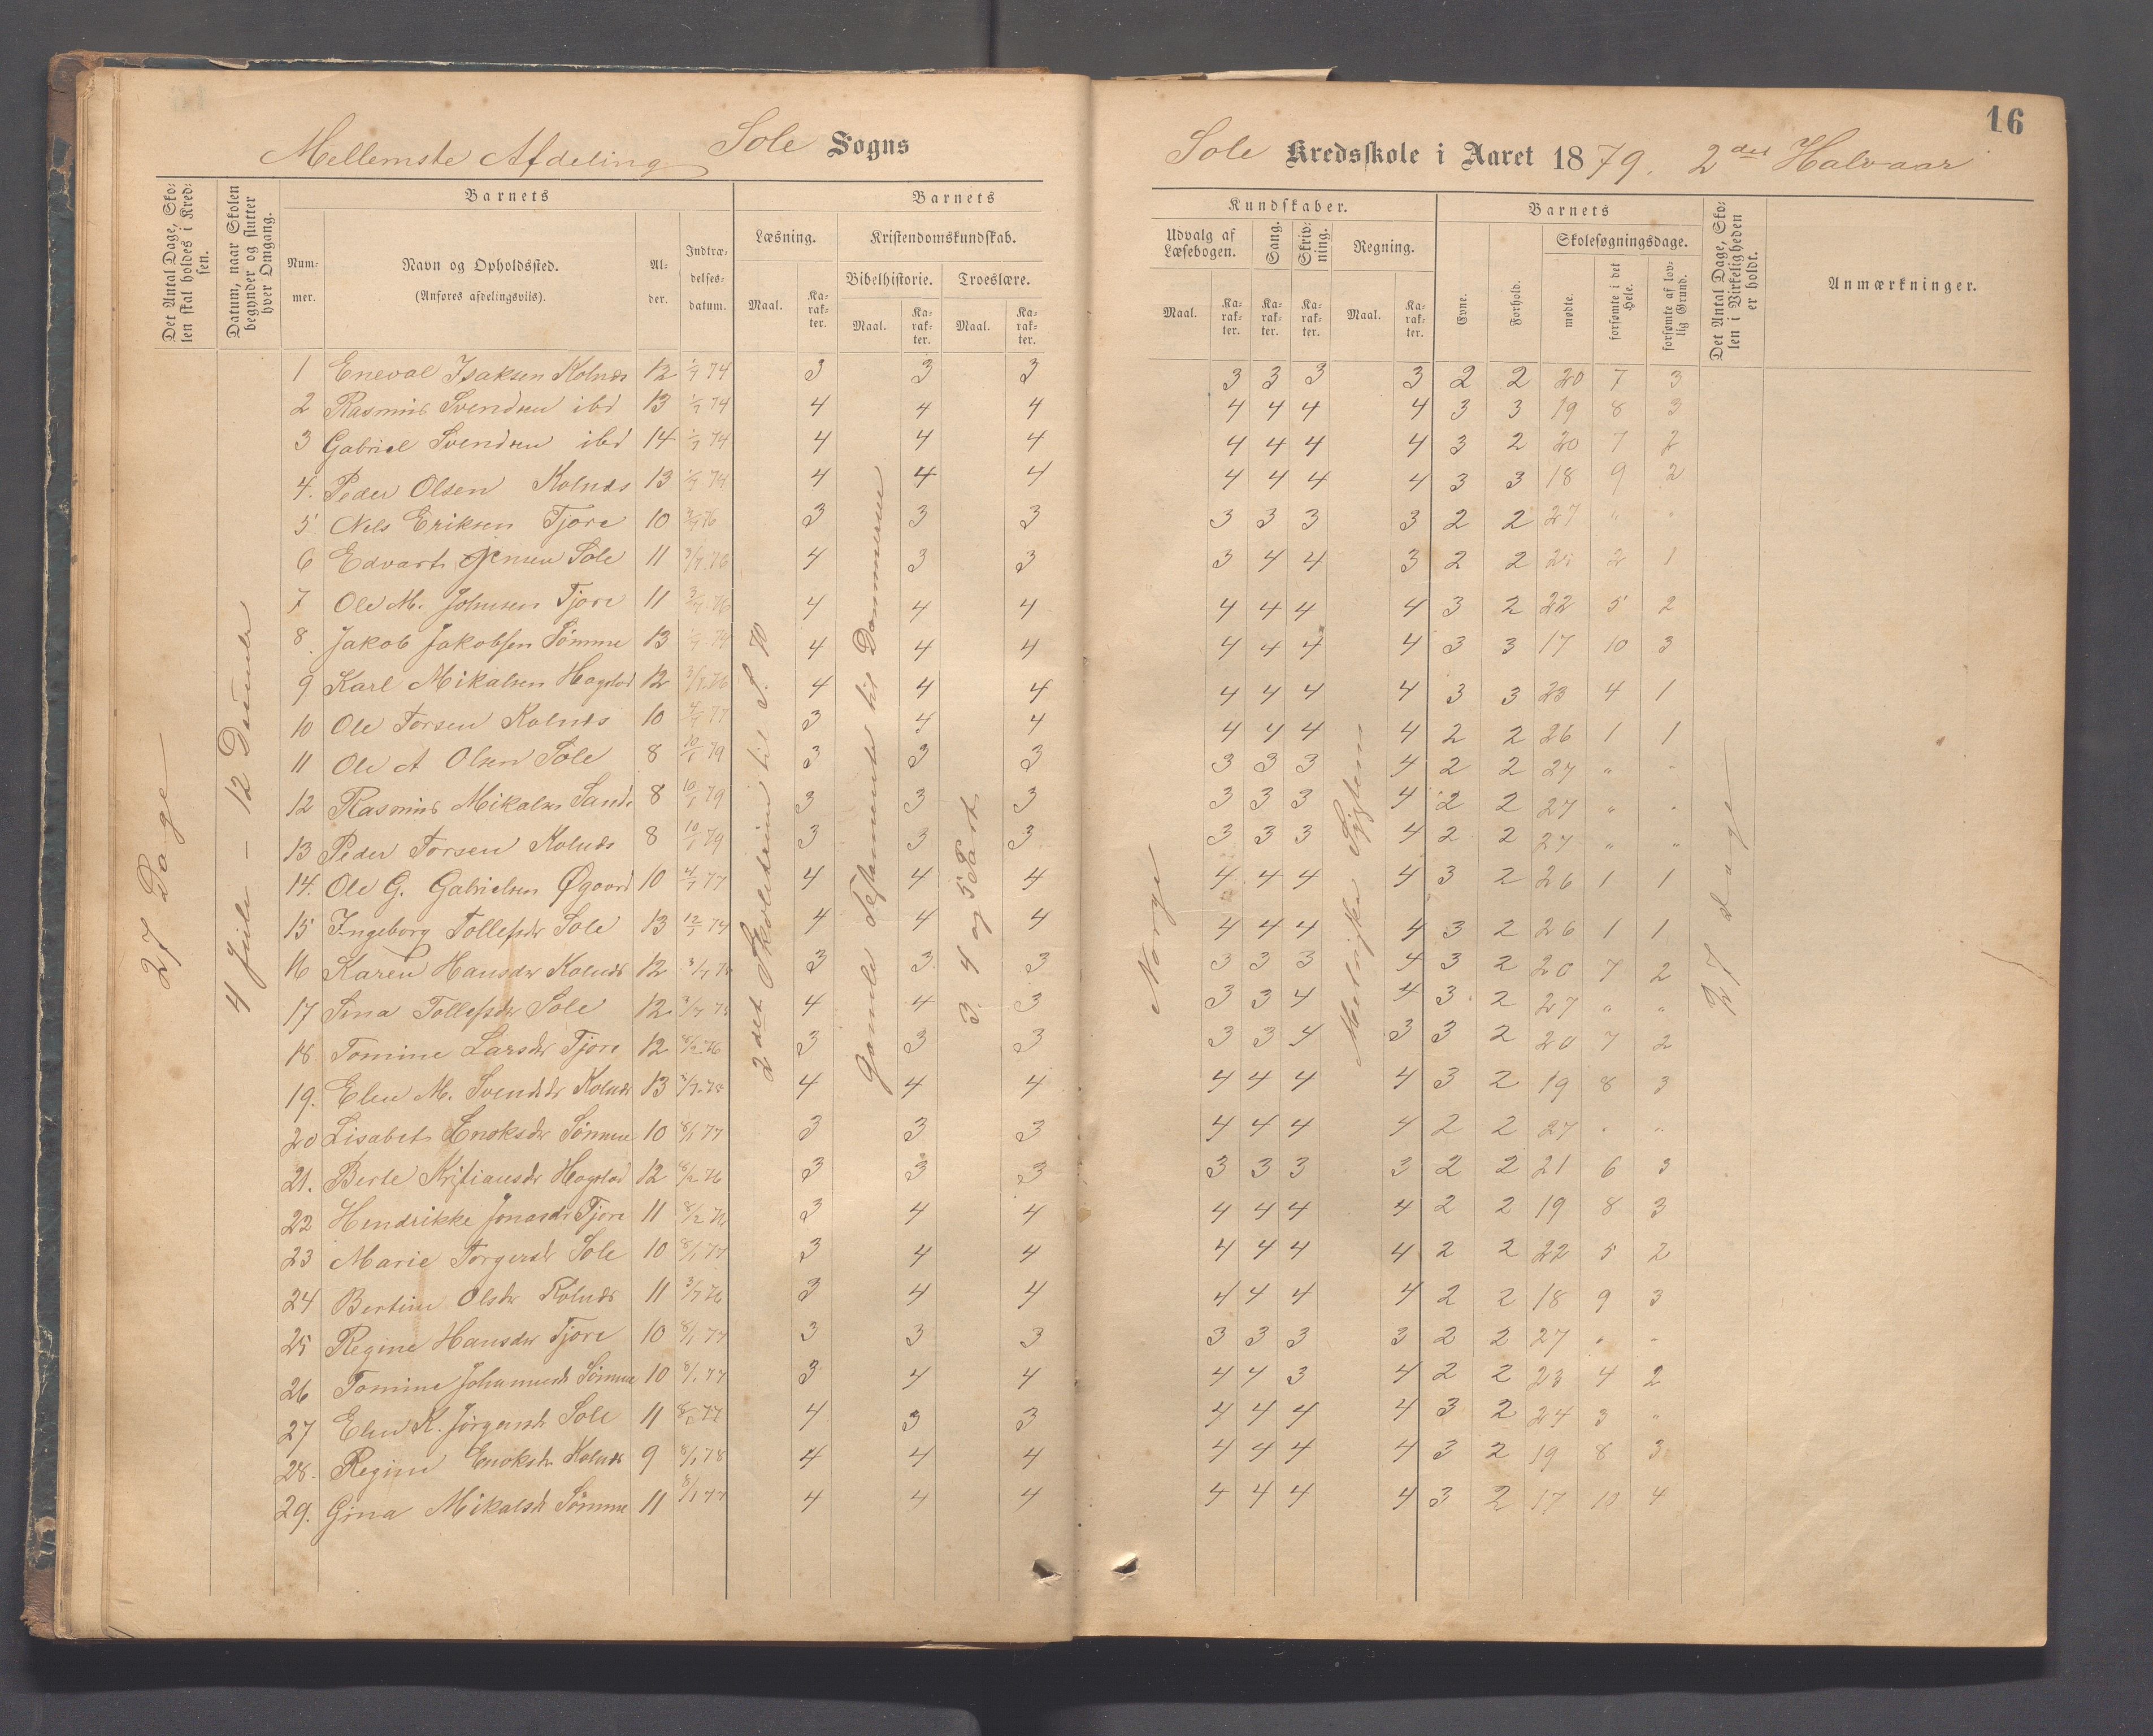 16
Mellemste Afdeling Sole Sogns
Sole Kredsskole i Aaret 1879. 2det Halvaar
Det Antal Dage, Skolen skal holdes i Kredsen.
Datum, naar Skolen begynder og slutter hver Omgang.
Barnets
Nummer.
Navn og Opholdssted.
(Anføres afdelingsviis).
Alder.
Indtrædelsesdatum.
Barnets
Læsning.
Maal.
Karakter.
Kristendomskundskab.
Bibelhistorie.
Maal.
Karakter.
Troeslære.
Maal.
Karakter.
Kundskaber.
Udvalg af Læsebogen.
Maal.
Karakter.
Sang.
Karakter.
Skrivning.
Karakter.
Regning.
Maal.
Karakter.
Barnets
Evne.
Forhold.
Skolesøgningsdage.
mødte.
forsømte i det Hele.
forsømte af lovlig Grund.
Det Antal Dage, Skolen i Virkeligheden er holdt.
Anmærkninger.
27 Dage
4 Juli - 12
2det til S. 70
Gamle Testamente til Dommerne
3. 4 og 5 Part
Norge
27 dage
1 Eneval Isaksen Kolnes 12 1/7 74 3 3 3 3 3 3 3 2 2 20 7 3
2 Rasmus Svendsen ibd 13 1/7 74 4 4 4 4 4 4 4 3 3 19 8 3
3 Gabriel Svendsen ibd 14 1/7 74 4 4 4 4 4 4 4 3 2 20 7 2
4. Peder Olsen Kolnes 13 1/7 74 4 4 4 4 4 4 4 3 3 18 9 2
5 Nels Eriksen Tjore 10 3/7 76 3 3 3 3 3 3 3 2 2 27 " "
6 Edvart Sole 11 3/7 76 4 3 3 3 4 4 3 2 2 25 2 1
7 Ole M. Johnsen Tjore 11 3/7 76 4 4 4 4 4 4 4 3 2 22 5 2
8. Jakob Jakobsen Sømme 13 1/7 74 4 4 4 4 4 4 4 3 3 17 10 3
9 Karl Mikalsen Hagstad 12 3/7 76 4 4 4 4 4 4 4 3 3 23 4 1
10 Ole Torsen Kolnes 10 4/7 77 3 4 4 4 4 4 4 2 2 26 1 1
11 Ole A Olsen Sole 8 10/1 79 3 3 3 3 3 3 4 2 2 27 " "
12 Rasmus Mikalsen Sande 8 10/1 79 3 3 3 3 3 3 4 2 2 27 " "
13 Peder Torsen Kolnes 8 10/1 79 3 3 3 3 3 3 4 2 2 27 " "
14. Ole G. Gabrielsen Øgaard 10 4/7 77 4 4 4 4 4 4 4 3 2 26 1 1
15 Ingeborg Tollefsdr Sole 13 12/7 74 4 4 4 4 4 4 4 3 2 26 1 1
16 Karen Hansdr Kolnes 12 3/7 75 3 3 3 3 3 3 4 3 2 20 7 2
17 Sina Tollefsdr Sole 12 3/7 75 4 4 3 3 3 4 4 3 2 27 " "
18. Tomine Larsdr Tjore 12 8/2 76 3 3 3 3 3 4 3 3 2 20 7 2
19. Elen M. Svendsdr Kolnes 13 3/7 75 4 4 4 4 4 4 4 3 2 19 8 3
20 Lisabet Enoksdr Sømme 10 8/1 77 3 3 3 4 4 4 4 2 2 27 " "
21. Berte Kristiansdr Hagstad 12 8/2 76 3 3 3 3 3 3 3 2 2 21 6 3
22 Hendrikke Jonasdr Tjore 11 8/2 76 3 4 4 4 4 4 4 2 2 19 8 3
23 Marie Torgersdr Sole 10 8/1 77 3 4 4 4 4 4 4 2 2 22 5 2
24 Bertine Olsdr Kolnes 11 3/7 76 3 4 4 4 4 4 4 2 2 18 9 3
25 Regine Hansdr Tjore 10 8/1 77 3 3 3 3 3 3 3 2 2 27 " "
26 Tomine Johannesdr Sømme 10 8/1 77 3 4 4 4 4 3 4 2 2 23 4 2
27 Elen K. Jørgensdr Sole 11 8/1 77 4 3 3 4 4 4 4 3 2 24 3 "
28. Regine Enoksdr Kolnes 9 8/1 78 4 4 4 4 4 4 4 3 2 19 8 3
29. Gina Mikalsdr Sømme 11 8/1 77 4 4 4 4 4 4 4 3 2 17 10 4